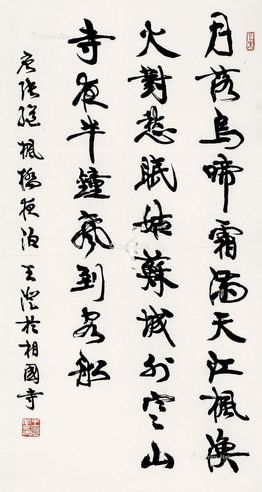 月落烏啼霜滿天江楓漁
火對愁眠姑蘇城外寒山
寺夜半鐘聲到客船
唐張繼楓橋夜泊 王澄於相國寺